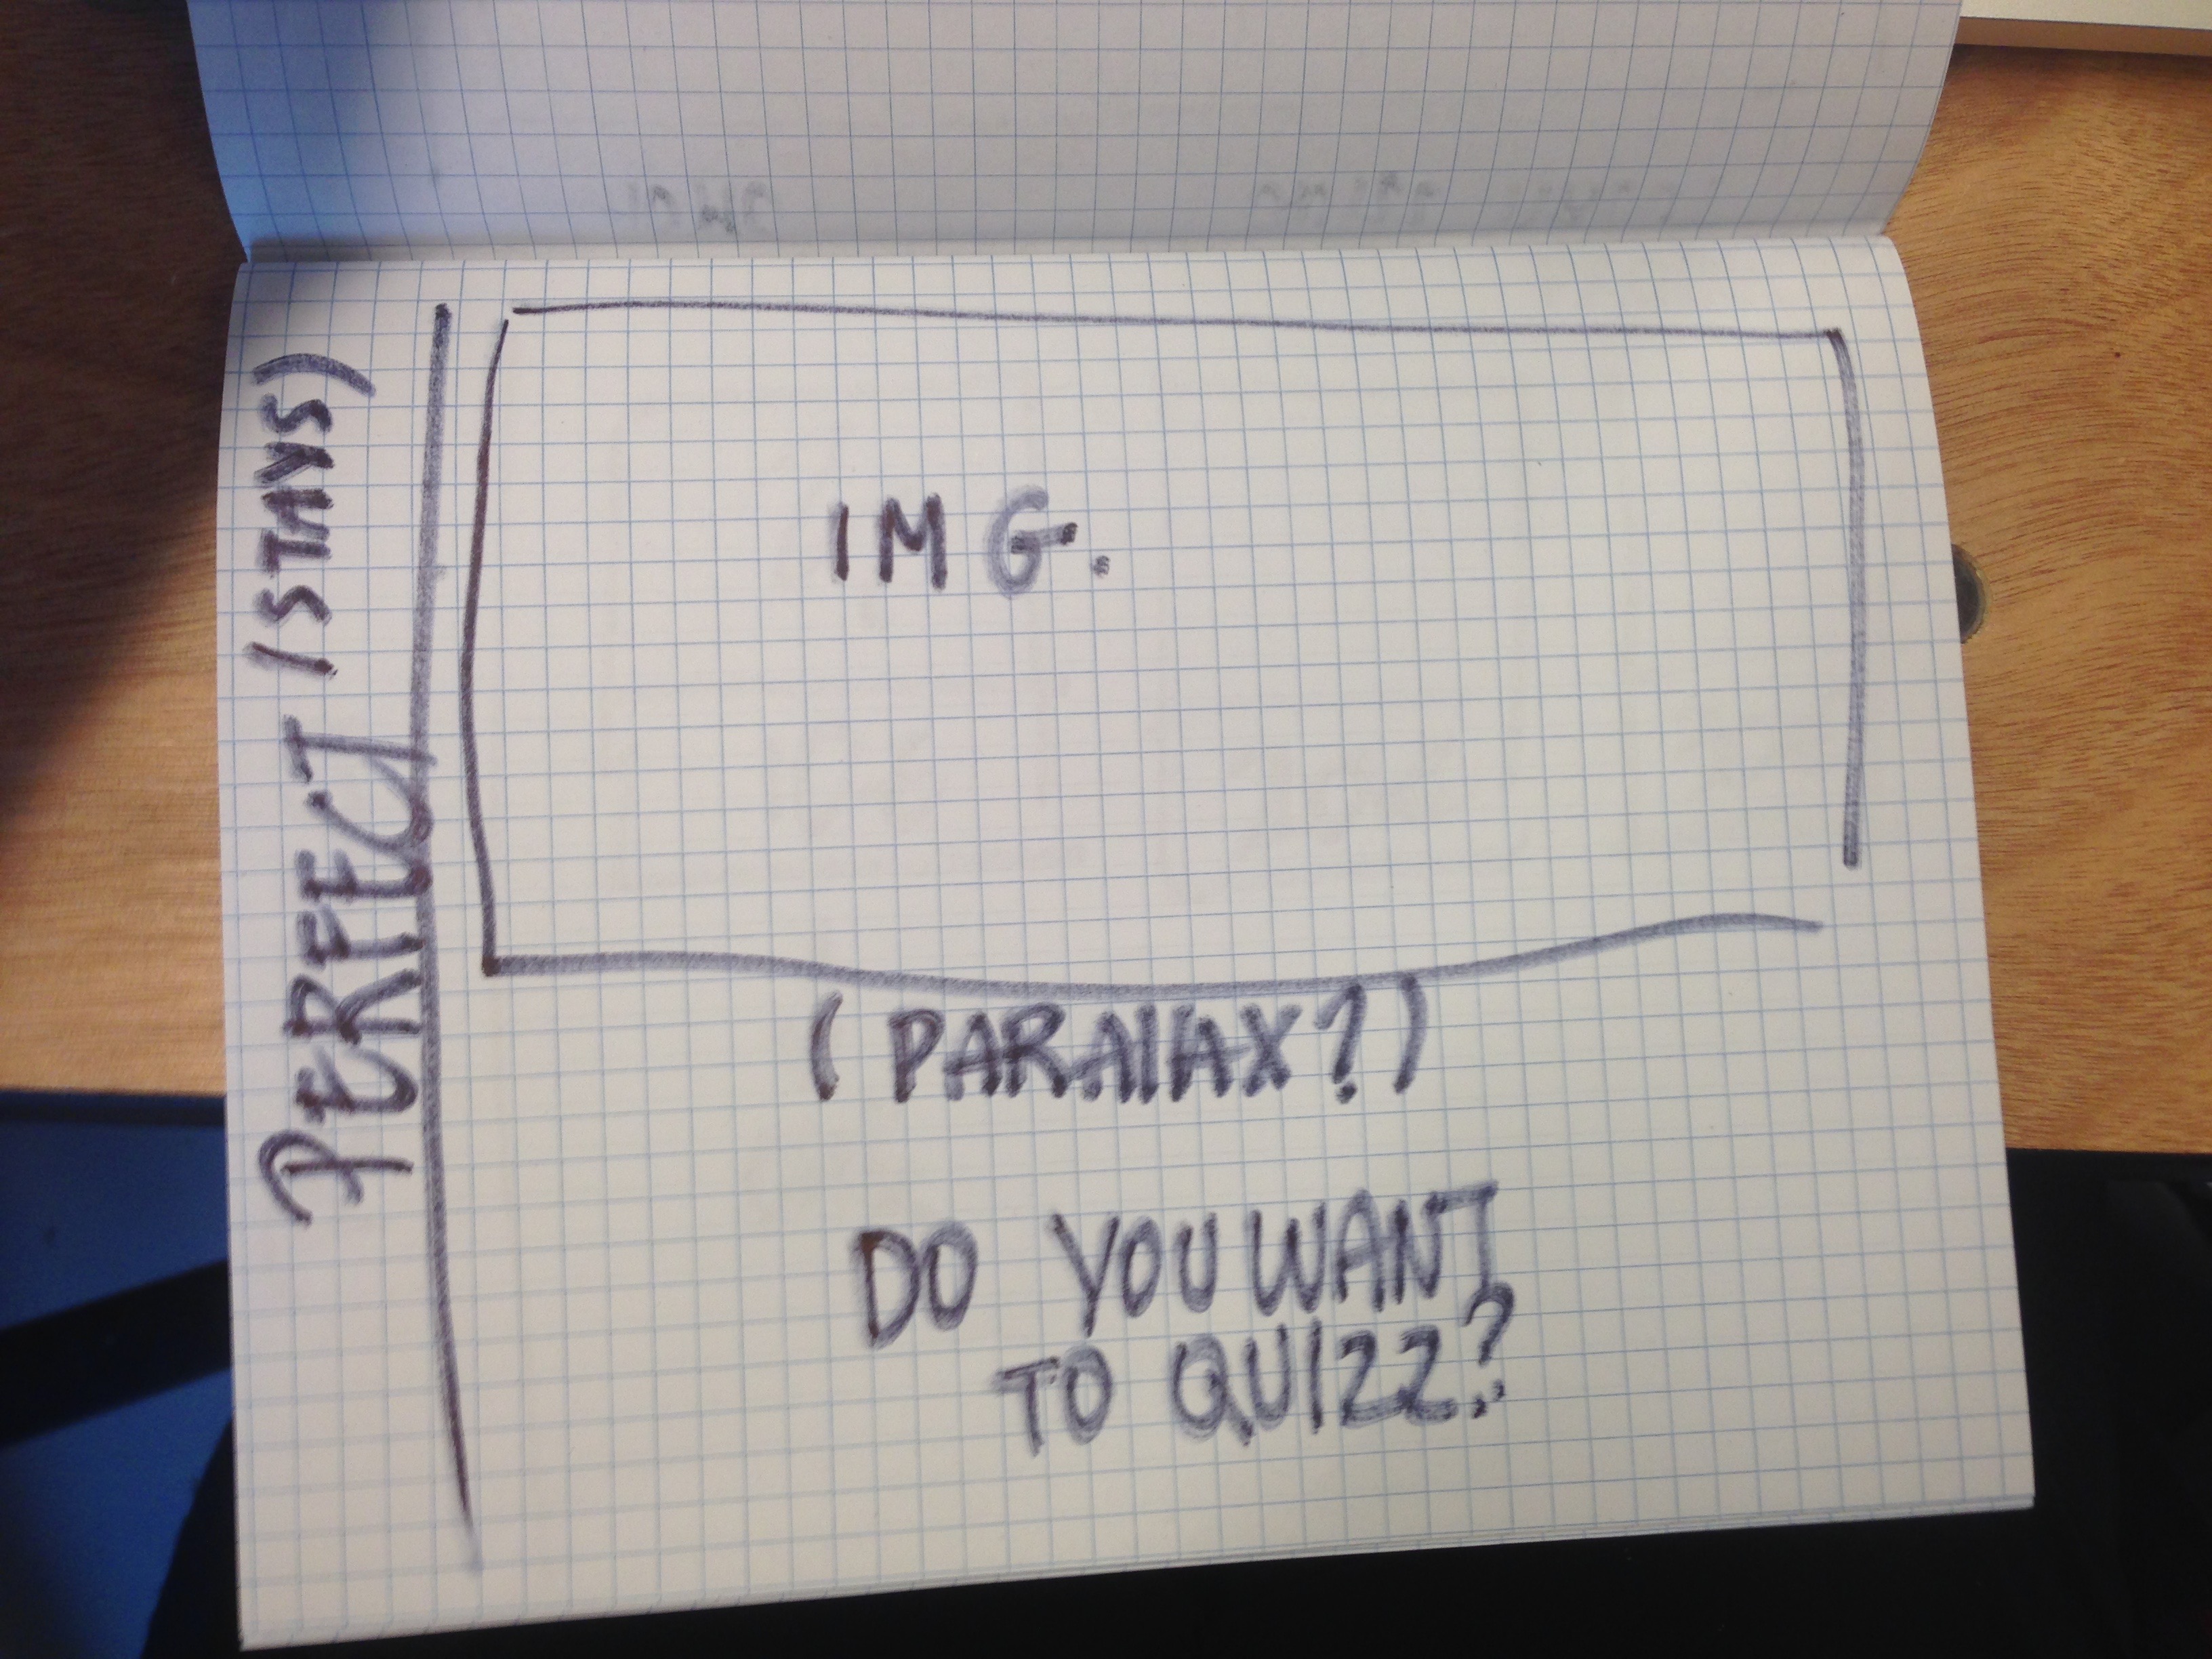 PERFECT (STAYS)
IMG.
(PARALAX?)
DO YOU WANT
TO QUIZZ?